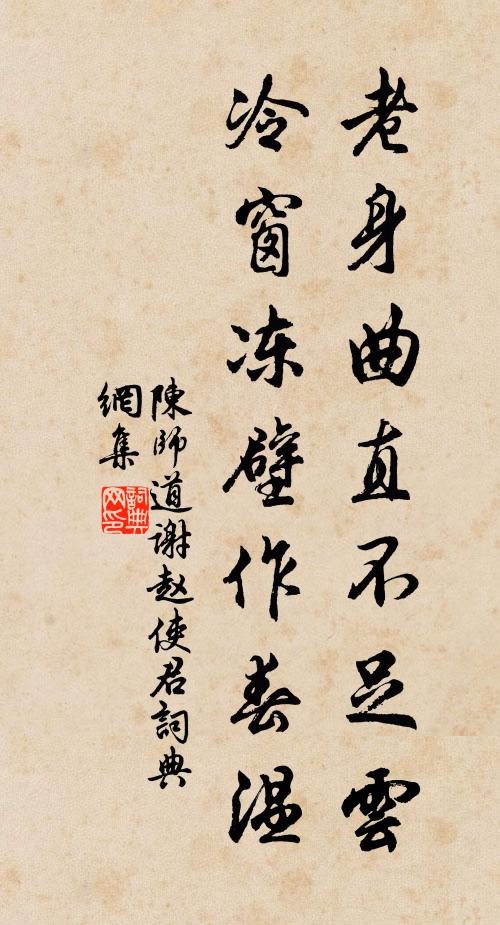 老身曲直不足雲
冷窗冻壁作春温
陳師道謝赵使君詞典
網集
詞典
网印